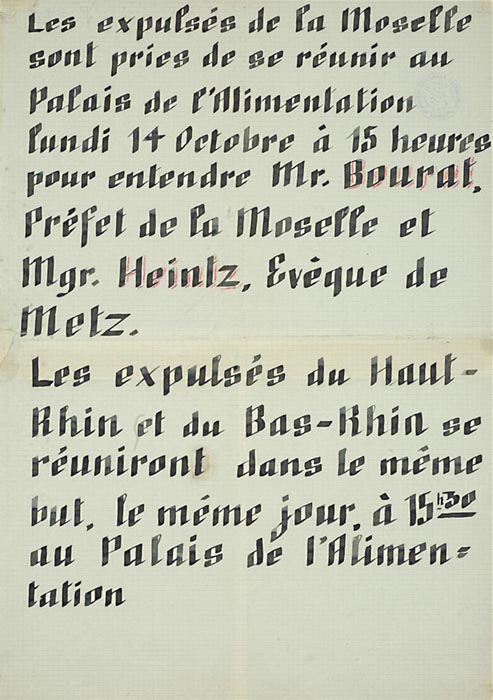 Les expulsés de la Moselle
sont pries de se réunir au
Palais de l'Alimentation
lundi 14 Octobre à 15 heures
pour entendre Mr. Bourat,
Préfet de la Moselle et
Mgr. Heintz, Evêque de
Metz.
Les expulsés du Haut-
Rhin et du Bas-Rhin se
réuniront dans le même
but, le même jour, à 15h30
au Palais de l'Alimen=
tation